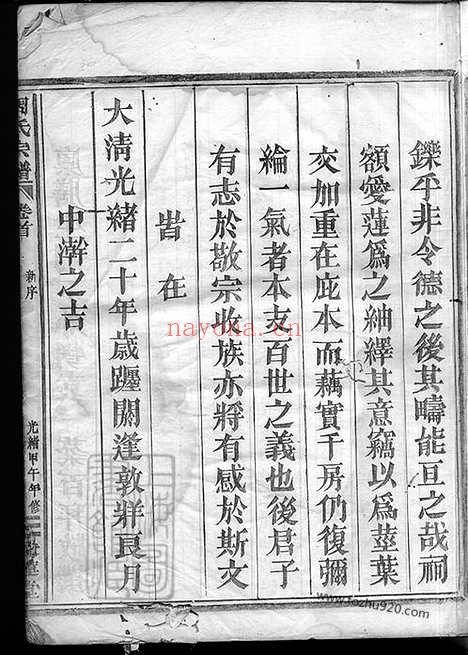 鑠乎非令德之後其疇能亘之哉祠
額愛蓮爲之紬繹其意竊以爲莖葉
交加重在庇本而藕實千房仍復彌
綸一氣者本支百世之義也後君子
有志於敬宗收族亦將有感於斯文
旹在
大清光緒二十年歲躔閼逢敦牂良月
中澣之吉
周氏宗譜 卷首 新序 光緒甲午年修 堂
nayona.cn
www.fozhu920.com